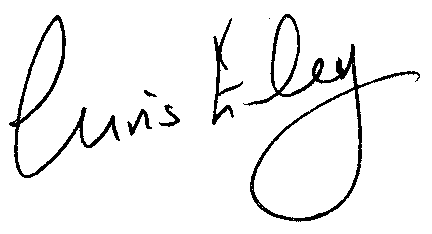 Chris Exley